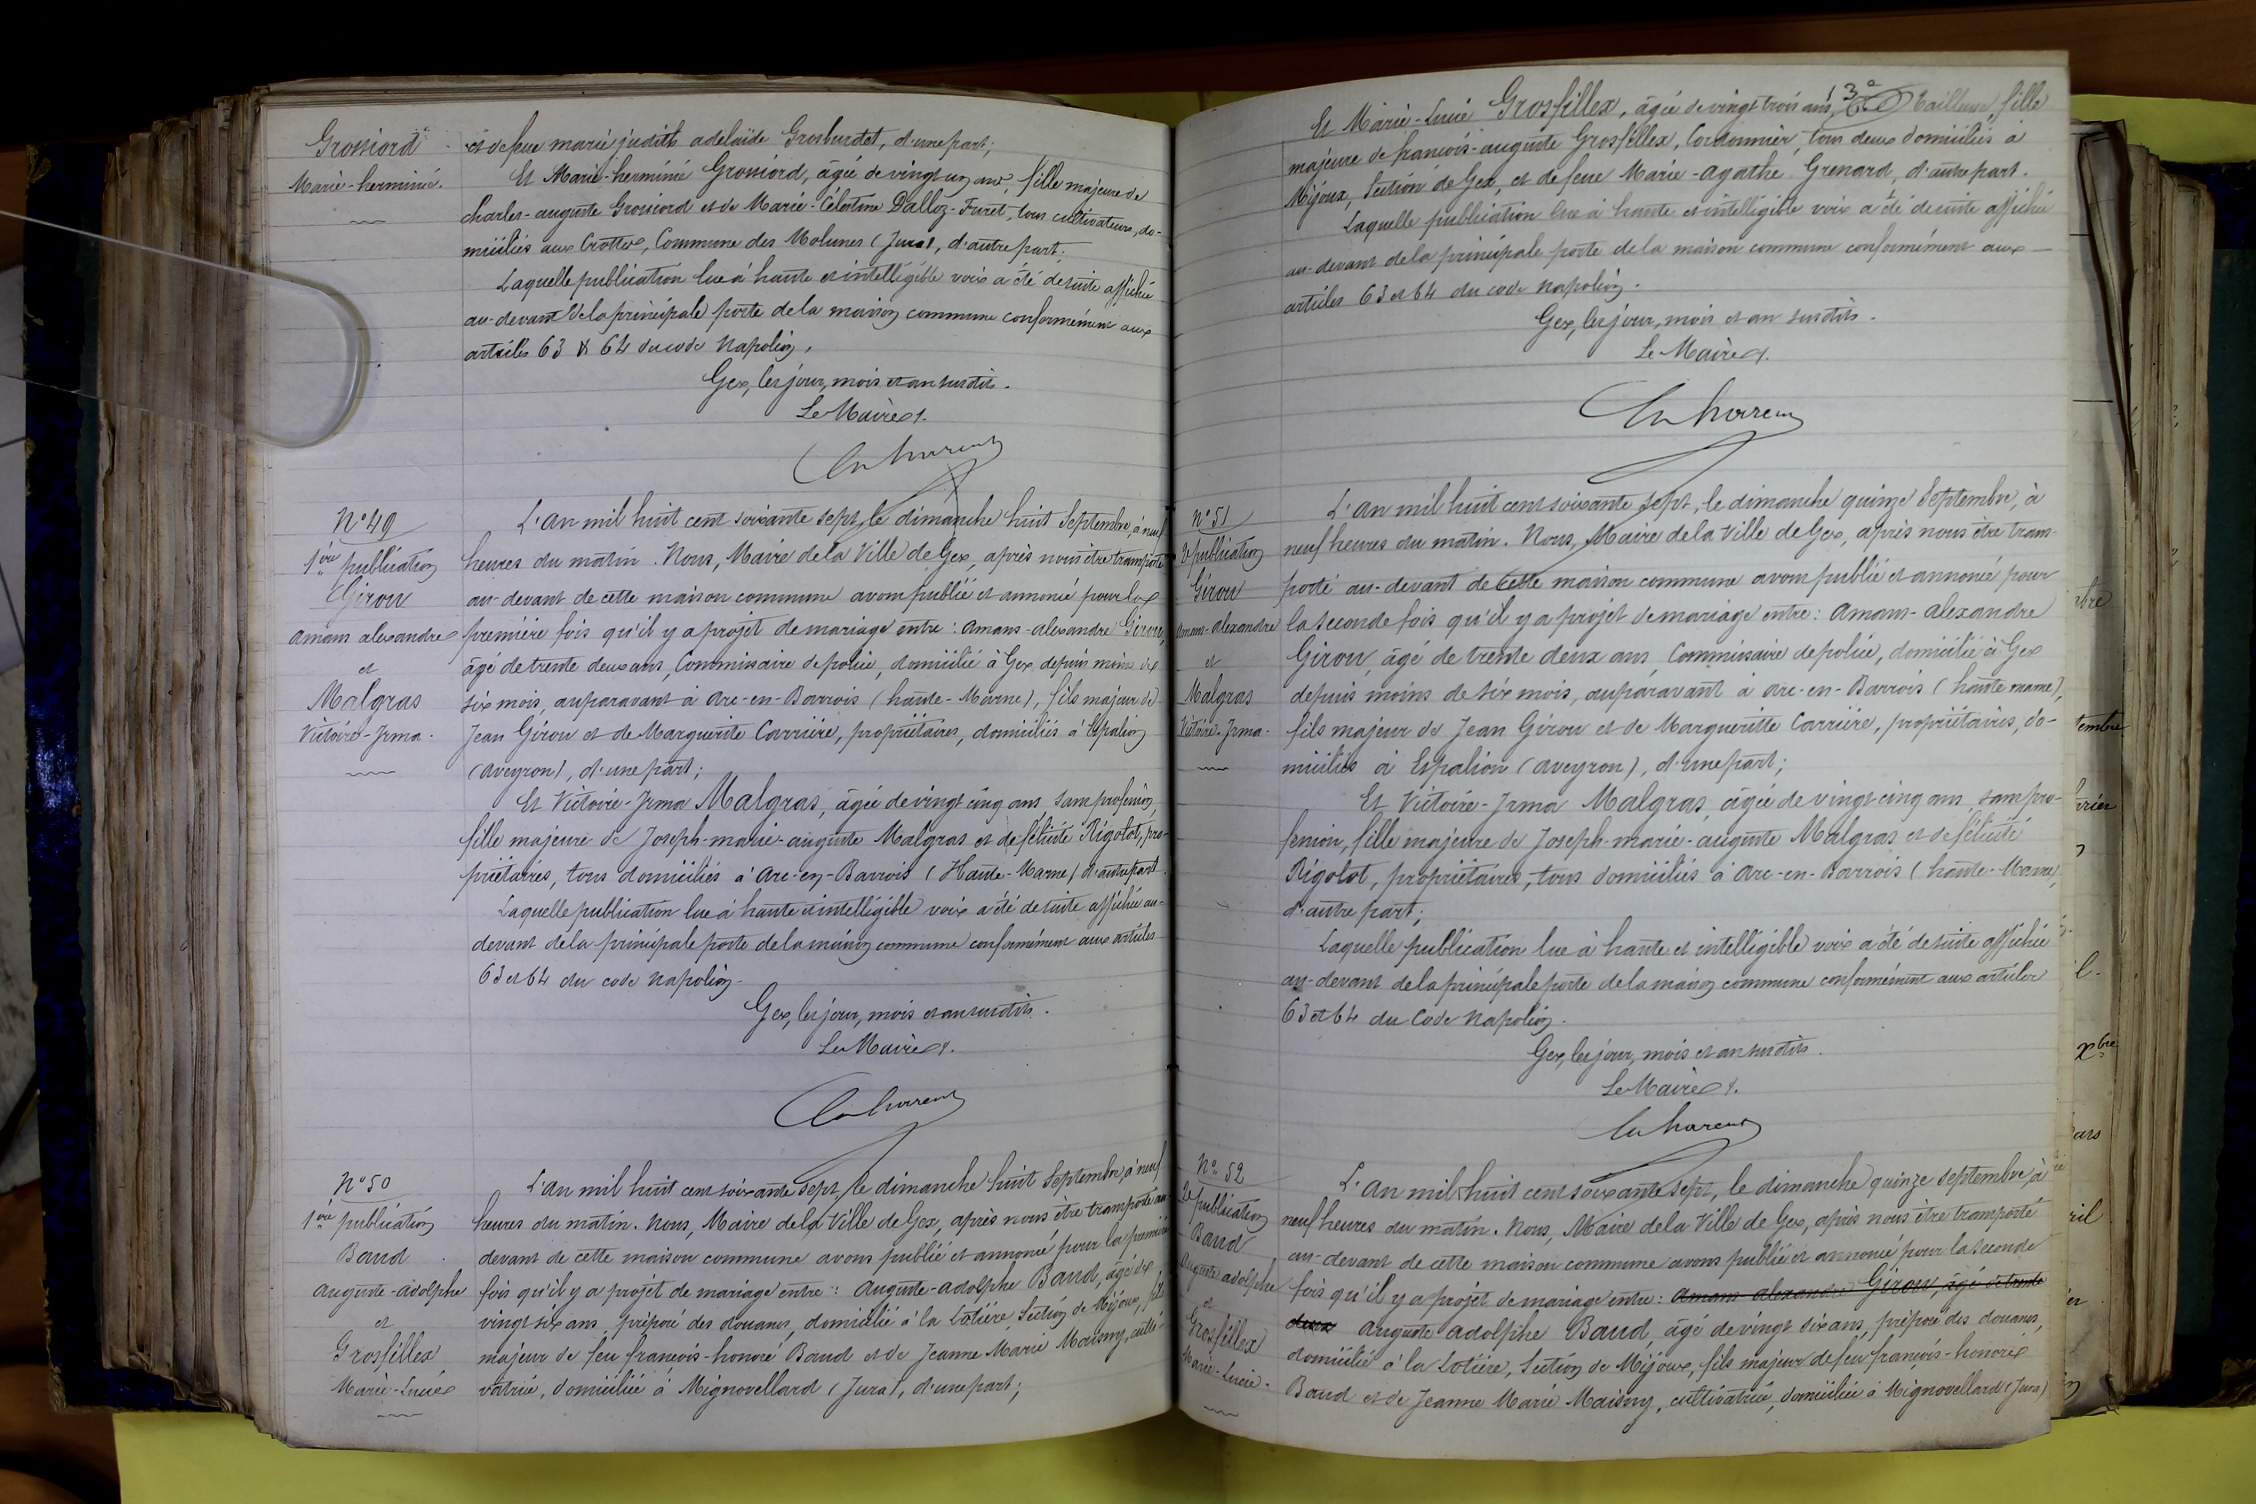 Grossiord
Marie-herminie.
et de feue marie judith adelaïde Grosburdet, d'une part;
Et Marie-herminie Grossiord, âgée de vingt un ans, fille majeure de
Charles-auguste Grossiord et de Marie-Célestine Dalloz-Furet, tous cultivateurs, do-
miciliés aux Crottes, Commune des Molunes (Jura), d'autre part;
Laquelle publication lue à haute et intelligible voix a été de suite affichée
au-devant de la principale porte de la maison commune conformément aux
articles 63 & 64 du code Napoléon.
Gex, les jour, mois et an susdits.
Le Maire
N° 49
1ère publication
Girou
Amans alexandre
et
Malgras
Victoire-Irma.
L'an mil huit cent soixante sept, le dimanche huit Septembre, à neuf
heures du matin. Nous, Maire de la Ville de Gex, après nous être transporté
au-devant de cette maison commune avons publié et annoncé pour la
première fois qu'il y a projet de mariage entre : Amans-alexandre Girou,
âgé de trente deux ans, Commissaire de police, domicilié à Gex depuis moins de
six mois, auparavant à Arc-en-Barrois (haute-Marne), fils majeur de
Jean Girou et de Marguerite Carrière, propriétaires, domiciliés à Espalion
(aveyron), d'une part;
Et Victoire-Irma Malgras, âgée de vingt cinq ans, sans profession
fille majeure de Joseph-marie-auguste Malgras et de félicité Rigolot, pro-
priétaires, tous domiciliés à Arc-en-Barrois (Haute-Marne) d'autre part.
Laquelle publication lue à haute et intelligible voix a été de suite affichée au-
devant de la principale porte de la maison commune conformément aux articles
63 et 64 du code Napoléon.
Gex, les jour, mois et an susdits.
Le Maire
N° 50
1ère publication
Baud
Auguste-adolphe
et
Grosfillex
Marie-Lucie
L'an mil huit cent soixante sept, le dimanche huit Septembre, à neuf
heures du matin. Nous, Maire de la Ville de Gex, après nous être transporté au-
devant de cette maison commune avons publié et annoncé pour la première
fois qu'il y a projet de mariage entre : Auguste-adolphe Baud, âgé de
vingt six ans, préposé des douanes, domicilié à la Sotière, Section de Mijoux, fils
majeur de feu françois-honoré Baud et de Jeanne Marie Maisny, culti-
vatrice, domiciliée à Mignovellard (Jura), d'une part;
3
Et Marie-Lucie Grosfillex, âgée de vingt trois ans, tailleuse, fille
majeure de françois-auguste Grosfillex, Cordonnier, tous deux domiciliés à
Mijoux, Section de Gex, et de feue Marie-agathe Grenard, d'autre part.
Laquelle publication lue à haute et intelligible voix a été de suite affichée
au-devant de la principale porte de la maison commune conformément aux
articles 63 et 64 du code Napoléon.
Gex, les jour, mois et an susdits.
Le Maire
N° 51
2e publication
Girou
Amans-alexandre
et
Malgras
Victoire-Irma.
L'an mil huit cent soixante sept, le dimanche quinze Septembre, à
neuf heures du matin. Nous, Maire de la Ville de Gex, après nous être trans-
porté au-devant de cette maison commune avons publié et annoncé pour
la seconde fois qu'il y a projet de mariage entre : Amans-alexandre
Girou, âgé de trente deux ans, Commissaire de police, domicilié à Gex
depuis moins de six mois, auparavant à Arc-en-Barrois (haute marne),
fils majeur de Jean Girou et de Margueritte Carrière, propriétaires, do-
miciliés à Espalion (aveyron), d'une part;
Et Victoire-Irma Malgras, âgée de vingt cinq ans, sans pro-
fession, fille majeure de Joseph-marie-auguste Malgras et de félicité
Rigolot, propriétaires, tous domiciliés à Arc-en-Barrois (haute-Marne),
d'autre part;
Laquelle publication lue à haute et intelligible voix a été de suite affichée
au-devant de la principale porte de la maison commune conformément aux articles
63 et 64 du Code Napoléon.
Gex, les jour, mois et an susdits.
Le Maire
N° 52
2e publication
Baud
Auguste adolphe
et
Grosfillex
Marie-Lucie.
L'an mil huit cent soixante sept, le dimanche quinze septembre, à
neuf heures du matin. Nous, Maire de la Ville de Gex, après nous être transporté
au-devant de cette maison commune avons publié et annoncé pour la seconde
fois qu'il y a projet de mariage entre : Amans-alexandre Girou, âgé de trente
deux Auguste adolphe Baud, âgé de vingt six ans, préposé des douanes,
domicilié à la Sotière, Section de Mijoux, fils majeur de feu françois-honoré
Baud et de Jeanne Marie Maisny, cultivatrice, domiciliée à Mignovellard (Jura)